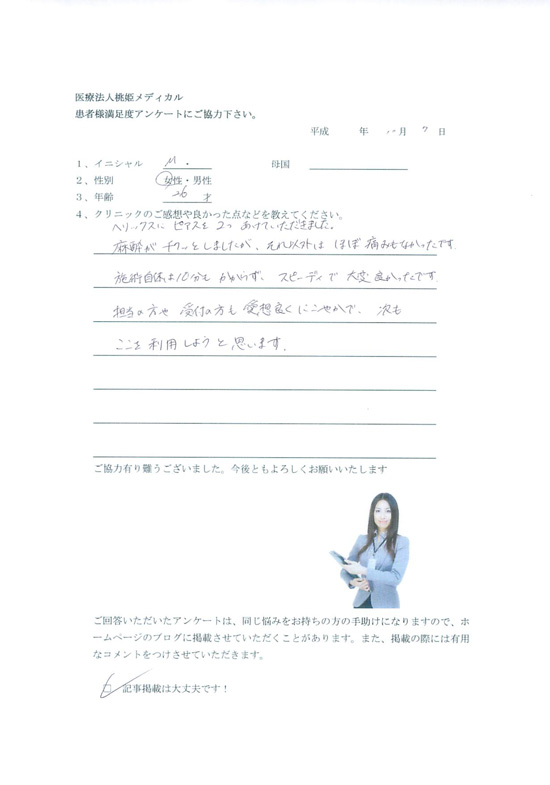 医療法人桃姫メディカル
患者様満足度アンケートにご協力下さい。
平成 年 月 7 日
1、イニシャル M. 母国
2、性別 女性・男性
3、年齢 26 才
4、クリニックのご感想や良かった点などを教えてください。
ヘリックスに ピアスを 2つ あけていただきました。
麻酔が チクッとしましたが、それ以外は ほぼ 痛みもなかったです。
施術自体は10分も かからず、スピーディで 大変 良かったです。
担当の方や 受付の方も 愛想良く にこやかで、 次も
ここを 利用しようと 思います。
ご協力有り難うございました。今後ともよろしくお願いいたします
ご回答いただいたアンケートは、同じ悩みをお持ちの方の手助けになりますので、ホ
ームページのブログに掲載させていただくことがあります。また、掲載の際には有用
なコメントをつけさせていただきます。
記事掲載は大丈夫です！